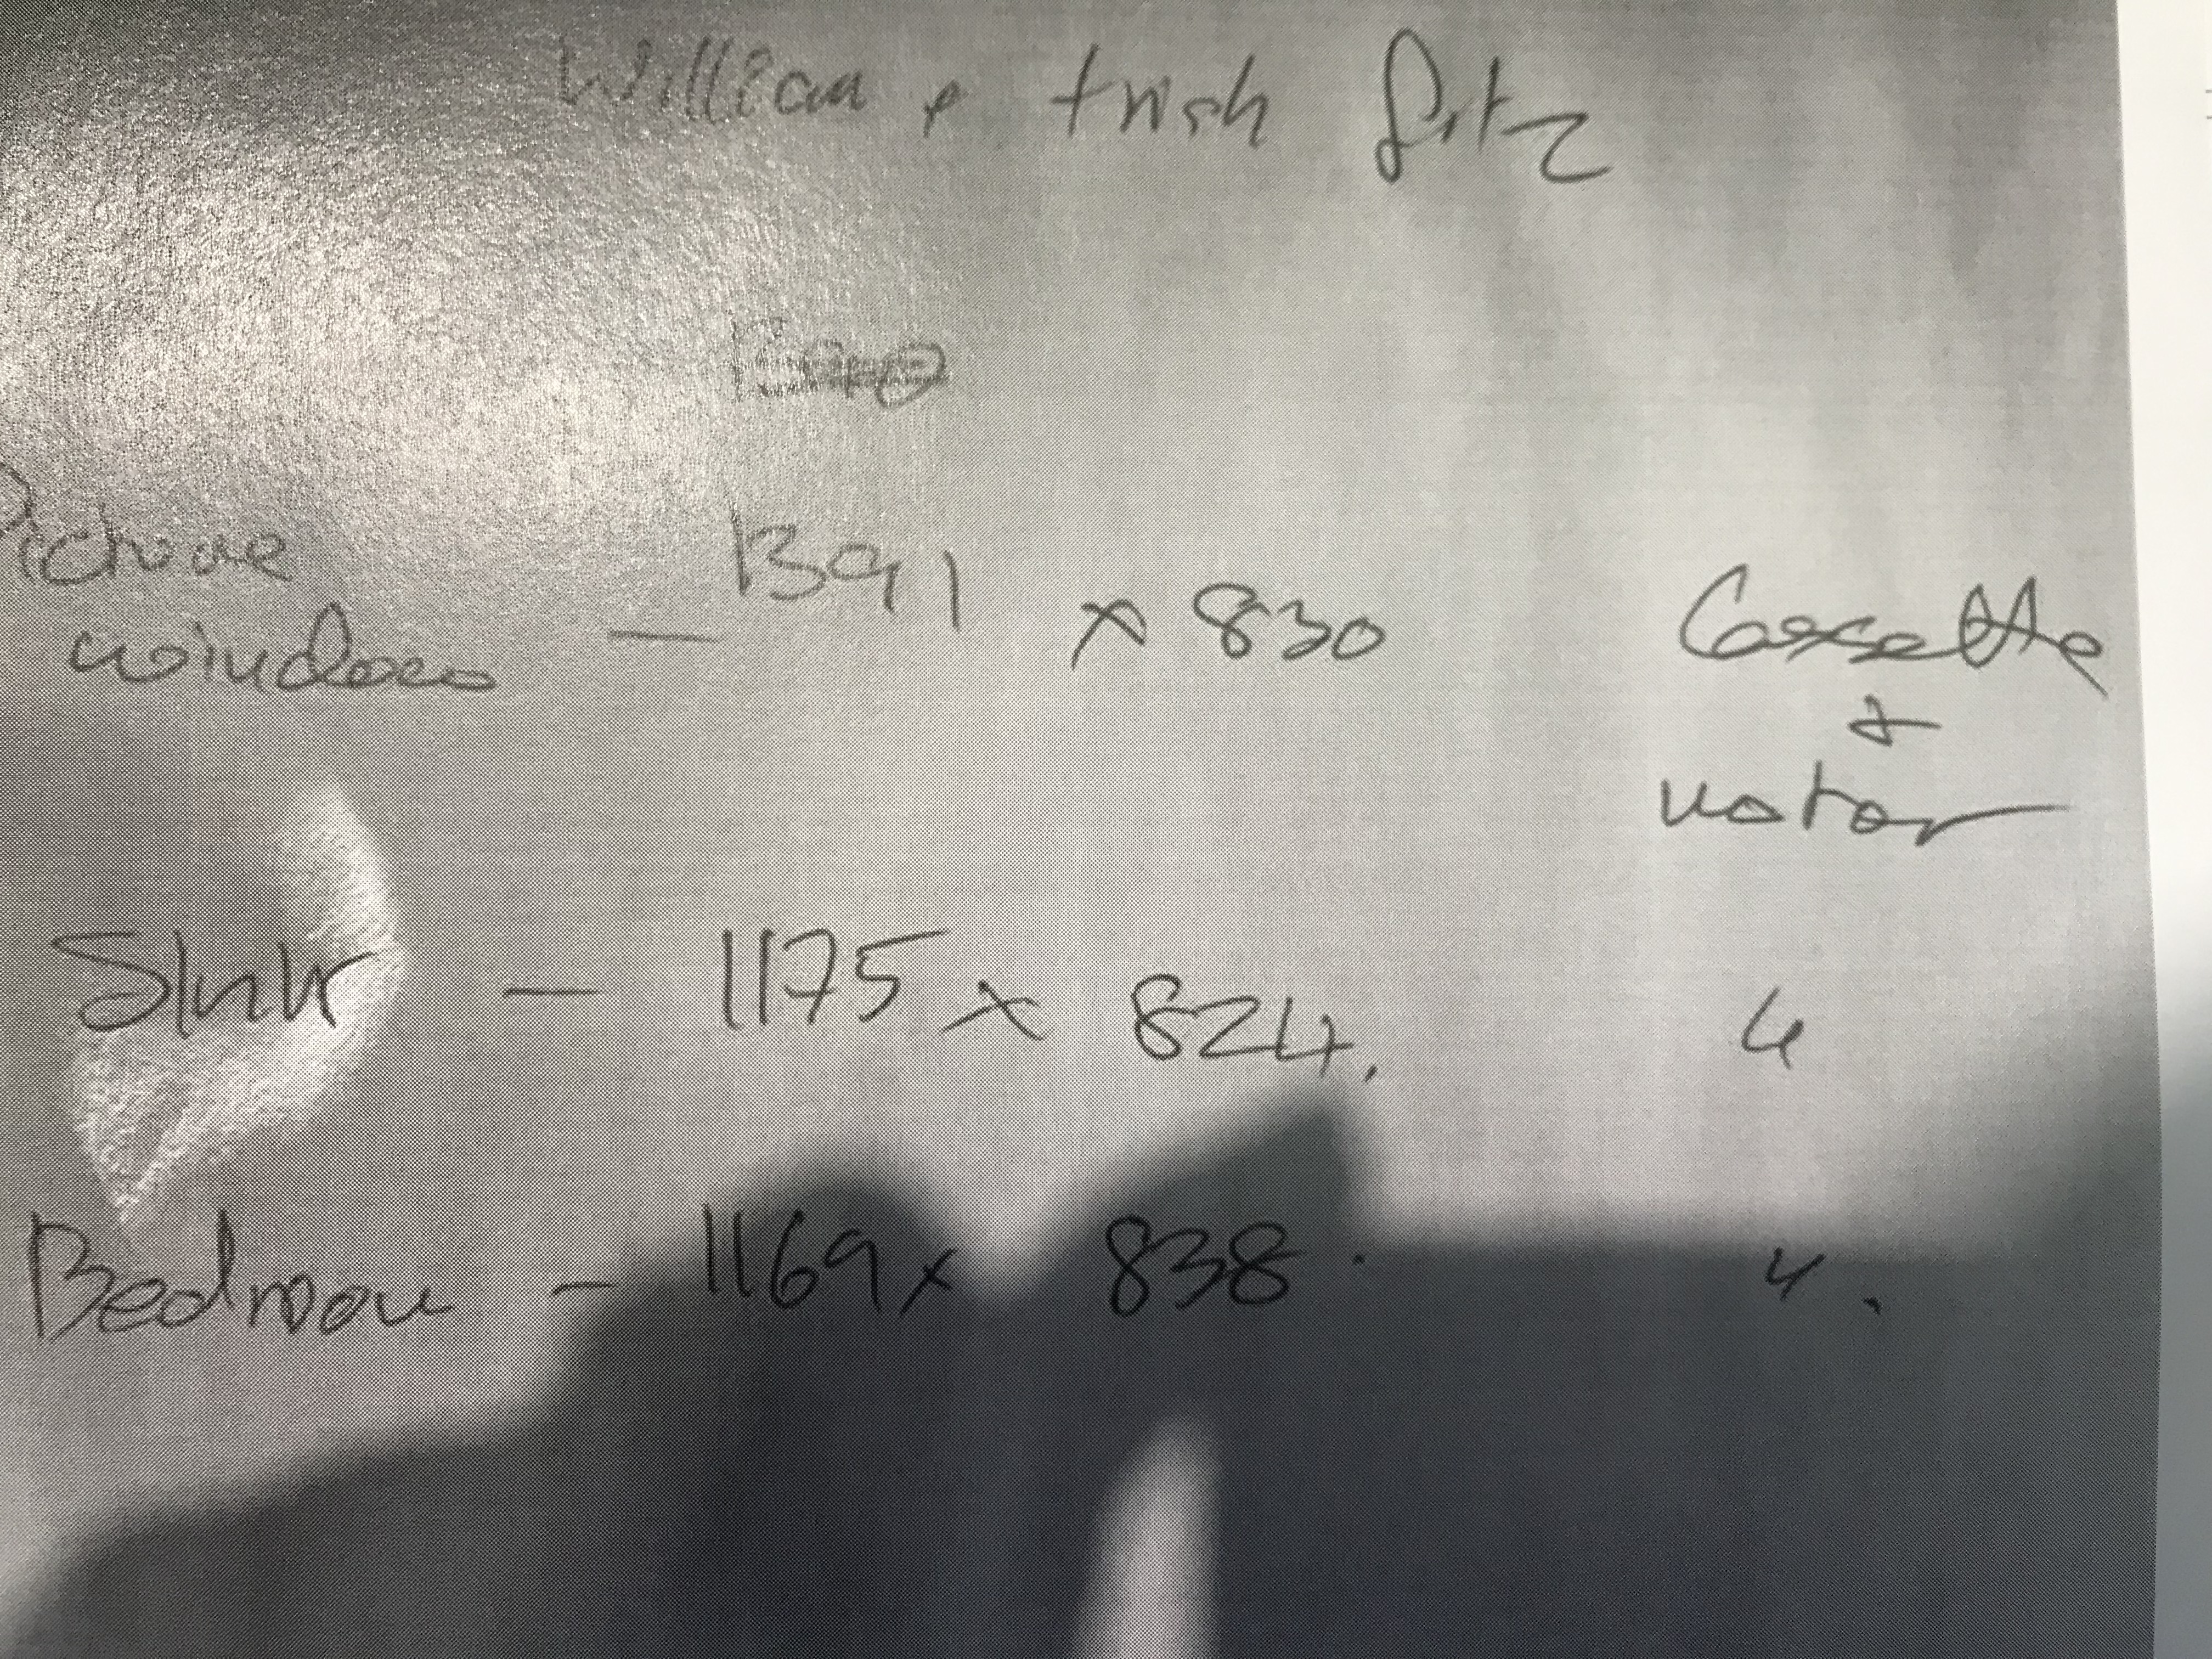 William & trish fitz
Picture window — 1391 x 830 Cassette
+
motor
Sink — 1175 x 824. "
Bedroom — 1169 x 838. ".